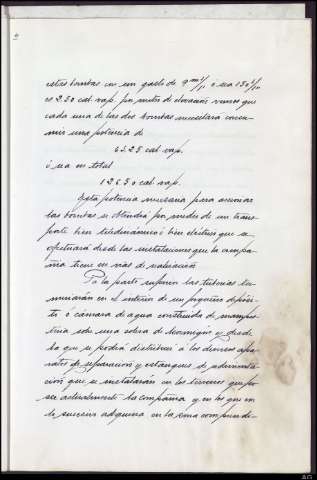 estas bombas con un gasto de 9 m³/1" ó sea 150 l/1"
es 2.50 cal. vap. por metro de elevación vemos que
cada una de las dos bombas necesitará consu-
mir una potencia de
63.25 cal. vap.
ó sea en total
126.50 cal. vap.
Esta potencia necesaria para accionar
las bombas se obtendrá por medio de un trans-
porte bien teledinámico ó bien eléctrico que se
efectuará desde las instalaciones que la compa-
ñia tiene en vias de realización
Por la parte superior las tuberias ter-
minarán en el interior de un pequeño depósi-
to ó cámara de agua construida de mampos-
teria sobre una solera de hormigón y desde
la que se podrá distribuir á los diversos apa-
ratos de separación y estanques de sedimenta-
ción que se instalarán en los terrenos que po-
see actualmente la compañia y en los que en
lo sucesivo adquiera en la zona comprendi-